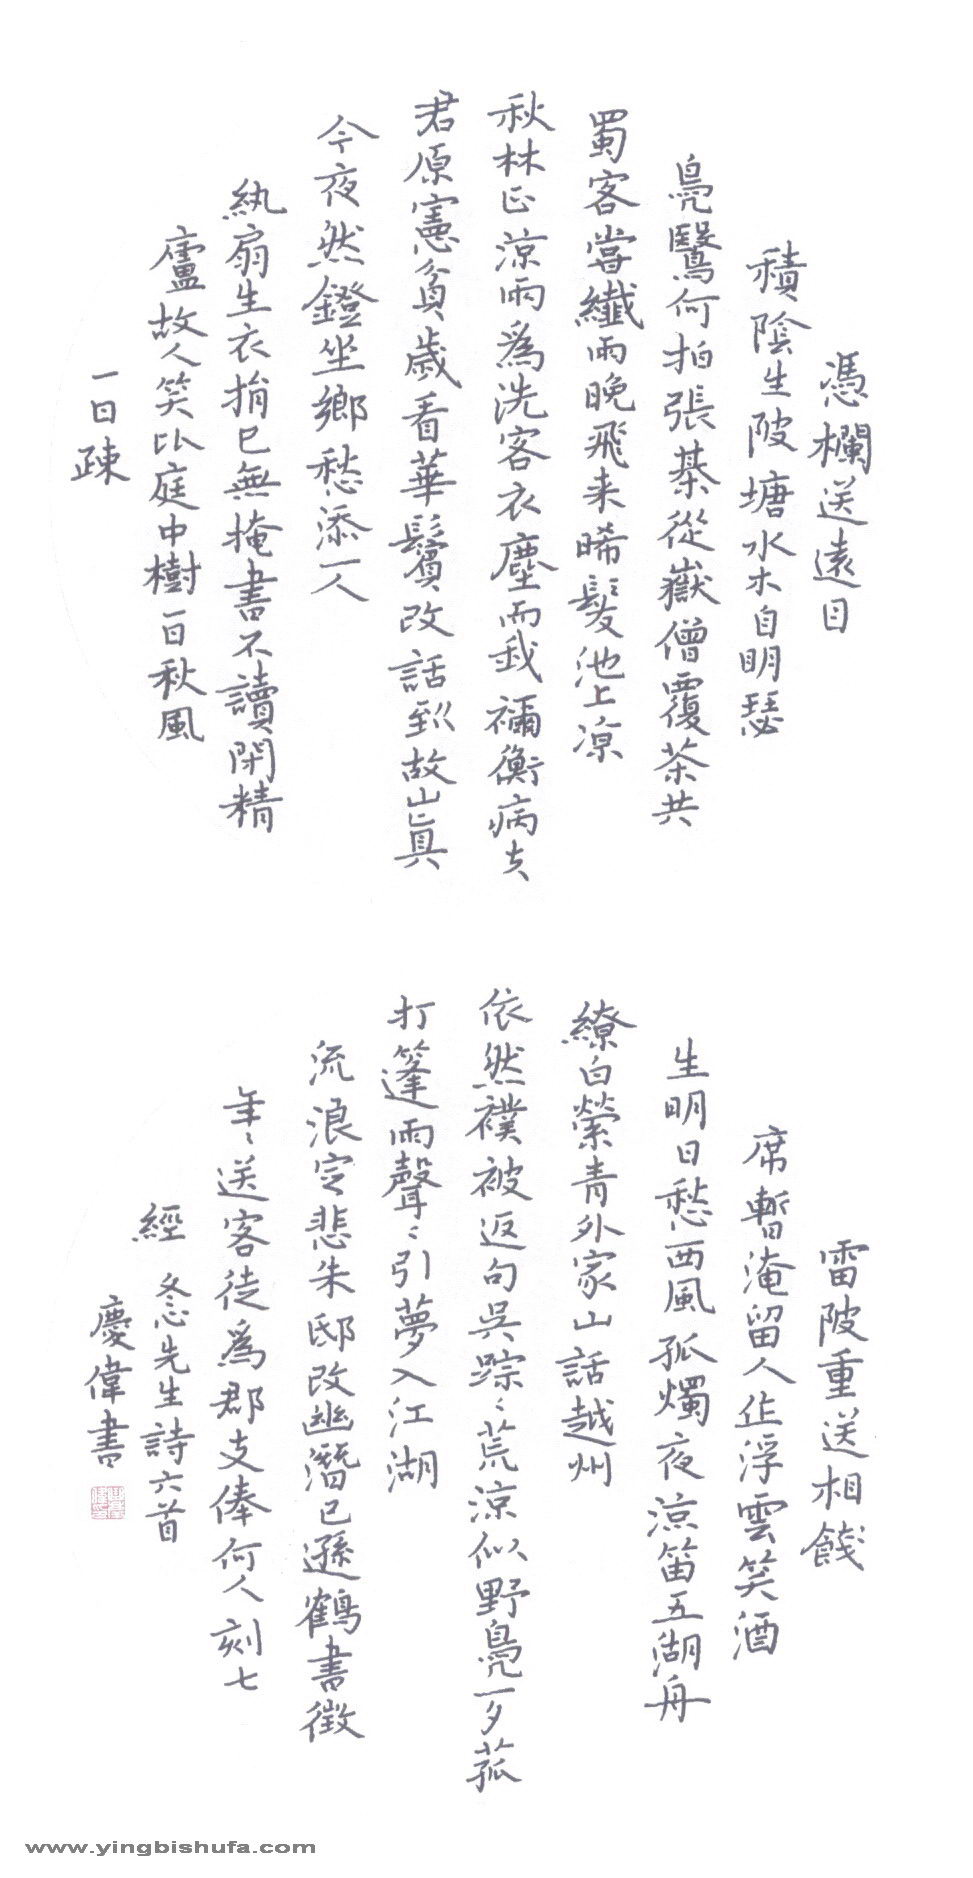 憑欄送遠目
積陰生陂塘水木自明瑟
鳧鷖何拍張棊從嶽僧覆茶共
蜀客嘗纖雨晚飛来晞髮池上涼
秋林正涼雨為洗客衣塵而我禰衡病夫
君原憲貧歲看華鬢改話到故山真
今夜然鐙坐鄉愁添一人
紈扇生衣捐已無掩書不讀閉精
廬故人笑比庭中樹一日秋風
一日疎
雷陂重送相餞
席暫淹留人作浮雲笑酒
生明日愁西風孤燭夜涼笛五湖舟
繚白縈青外家山話越州
依然襆被返句吳踪〻荒涼似野鳧一夕菰
打篷雨聲〻引夢入江湖
流浪定悲朱邸改幽潛已遜鶴書徵
年〻送客徒為郡支俸何人刻七
經 冬念先生詩六首
慶偉書
www.yingbishufa.com